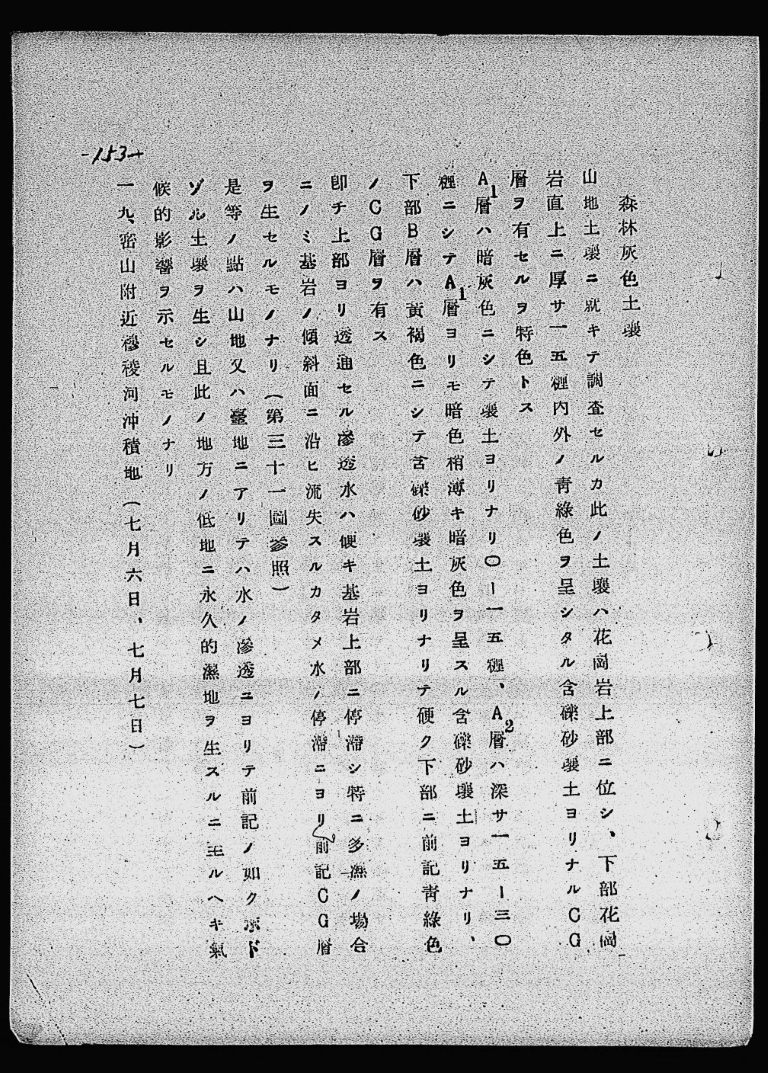 -153-
森林灰色土壤
山地土壤ニ就キテ調査セルカ此ノ土壤ハ花崗岩上部ニ位シ、下部花崗
岩直上ニ厚サ一五糎内外ノ靑綠色ヲ呈シタル含礫砂壤土ヨリナルCG
層ヲ有セルヲ特色トス
A1層ハ暗灰色ニシテ壤土ヨリナリ〇ー一五糎、A2層ハ深サ一五ー三〇
糎ニシテA1層ヨリモ暗色稍薄キ暗灰色ヲ呈スル含礫砂壤土ヨリナリ、
下部B層ハ黃褐色ニシテ含礫砂壤土ヨリナリテ硬ク下部ニ前記靑綠色
ノCG層ヲ有ス
卽チ上部ヨリ透通セル滲透水ハ硬キ基岩上部ニ停滯シ特ニ多濕ノ場合
ニノミ基岩ノ傾斜面ニ沿ヒ流失スルカタメ水ノ停滯ニヨリ前記CG層
ヲ生セルモノナリ(第三十一圖參照)
是等ノ點ハ山地又ハ臺地ニアリテハ水ノ滲透ニヨリテ前記ノ如クポド
ゾル土壤ヲ生シ且此ノ地方ノ低地ニ永久的濕地ヲ生スルニ至ルヘキ氣
候的影響ヲ示セルモノナリ
一九、密山附近穆稜河沖積地(七月六日、七月七日)